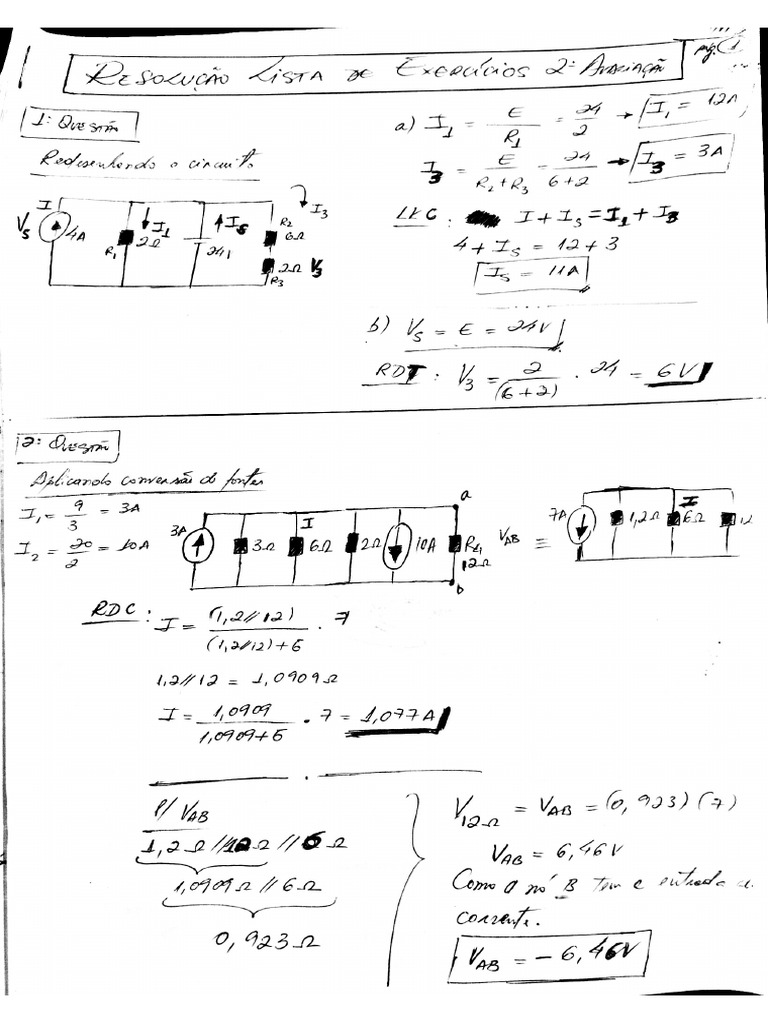 pág. 1
RESOLUÇÃO LISTA DE EXERCÍCIOS 2ª AVALIAÇÃO
1ª QUESTÃO
Redesenhando o circuito
I
Vs 4A
R1 2Ω I1
Is
24V
I3
R2
6Ω
2Ω V3
R3
a) I1 = E/R1 = 24/2 → I1 = 12A
I3 = E/(R2+R3) = 24/(6+2) → I3 = 3A
LKC: I + Is = I1 + I3
4 + Is = 12 + 3
Is = 11A
b) Vs = E = 24V
RDT: V3 = 2/(6+2) . 24 = 6V
2ª QUESTÃO
Aplicando conversão de fontes
I1 = 9/3 = 3A
I2 = 20/2 = 10A
3A 3Ω I 6Ω 2Ω 10A RL 12Ω
a
b
VAB ≡
7A 1,2Ω I 6Ω 12
RDC: I = (1,2//12)/((1,2//12)+6) . 7
1,2//12 = 1,0909Ω
I = 1,0909/(1,0909+6) . 7 = 1,077A
P/ VAB
1,2Ω//12Ω//6Ω
1,0909Ω//6Ω
0,923Ω
V12Ω = VAB = (0,923)(7)
VAB = 6,46V
Como o nó B tem e entrada a
corrente.
VAB = - 6,46V